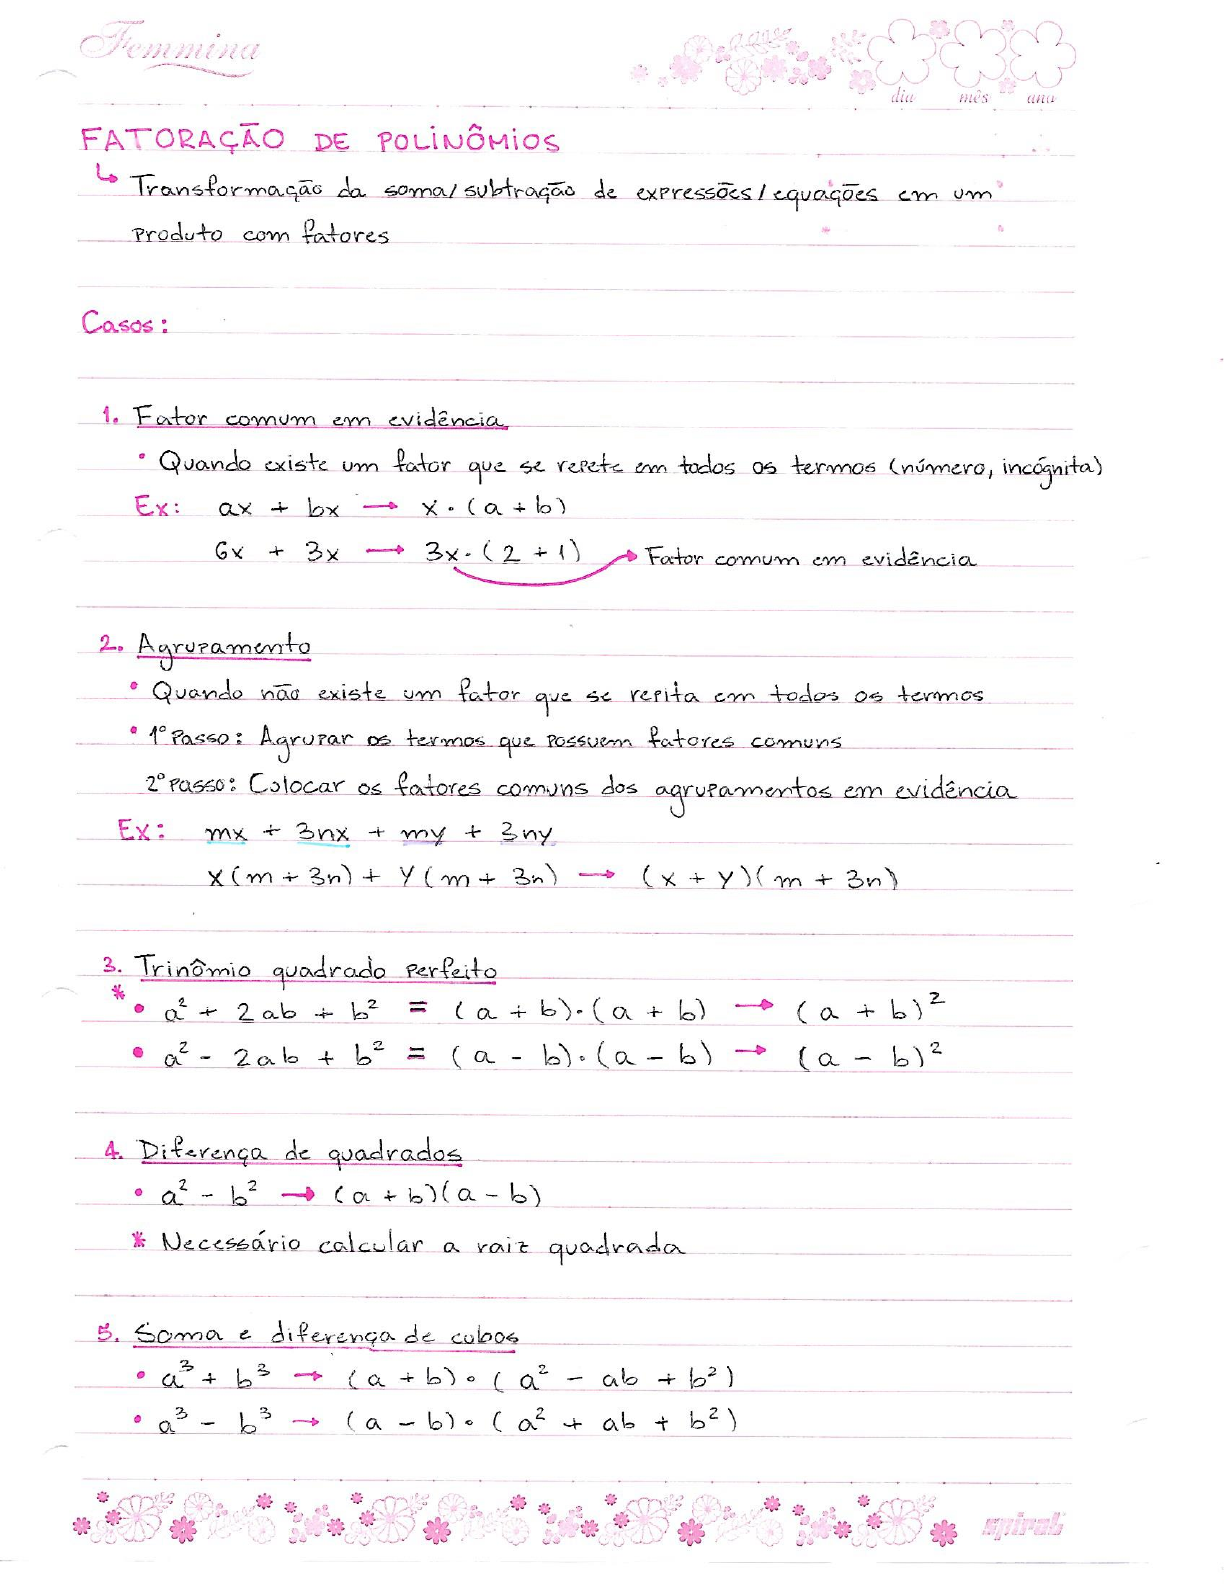 Femmina
dia mês ano
FATORAÇÃO DE POLINÔMIOS
↳ Transformação da soma/subtração de expressões/equações em um
produto com fatores
Casos:
1. Fator comum em evidência
• Quando existe um fator que se repete em todos os termos (número, incógnita)
Ex: ax + bx → x · (a + b)
6x + 3x → 3x · (2 + 1) → Fator comum em evidência
2. Agrupamento
• Quando não existe um fator que se repita em todos os termos
• 1º Passo: Agrupar os termos que possuem fatores comuns
2º Passo: Colocar os fatores comuns dos agrupamentos em evidência
Ex: mx + 3nx + my + 3ny
x(m + 3n) + y(m + 3n) → (x + y)(m + 3n)
3. Trinômio quadrado perfeito
* • a² + 2ab + b² = (a + b)·(a + b) → (a + b)²
• a² - 2ab + b² = (a - b)·(a - b) → (a - b)²
4. Diferença de quadrados
• a² - b² → (a + b)(a - b)
* Necessário calcular a raiz quadrada
5. Soma e diferença de cubos
• a³ + b³ → (a + b) · (a² - ab + b²)
• a³ - b³ → (a - b) · (a² + ab + b²)
spiral